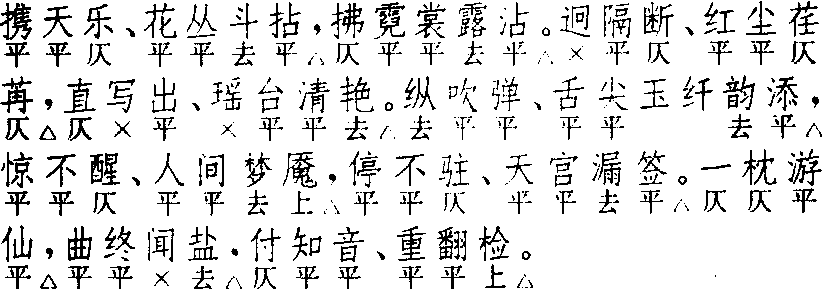 携天乐、花丛斗拈，拂霓裳露沾。迥隔断、红尘荏
平平仄 平平去平△仄平平去平△×平仄 平平仄
苒，直写出、瑶台清艳。纵吹弹、舌尖玉纤韵添，
仄△仄×平 ×平平去△去平平 平平 去平△
惊不醒、人间梦魇，停不驻、天宫漏签。一枕游
平平仄 平平去上△平平仄 平平去平△仄仄平
仙，曲终闻盐，付知音、重翻检。
平△平平×去△仄平平 平平上△